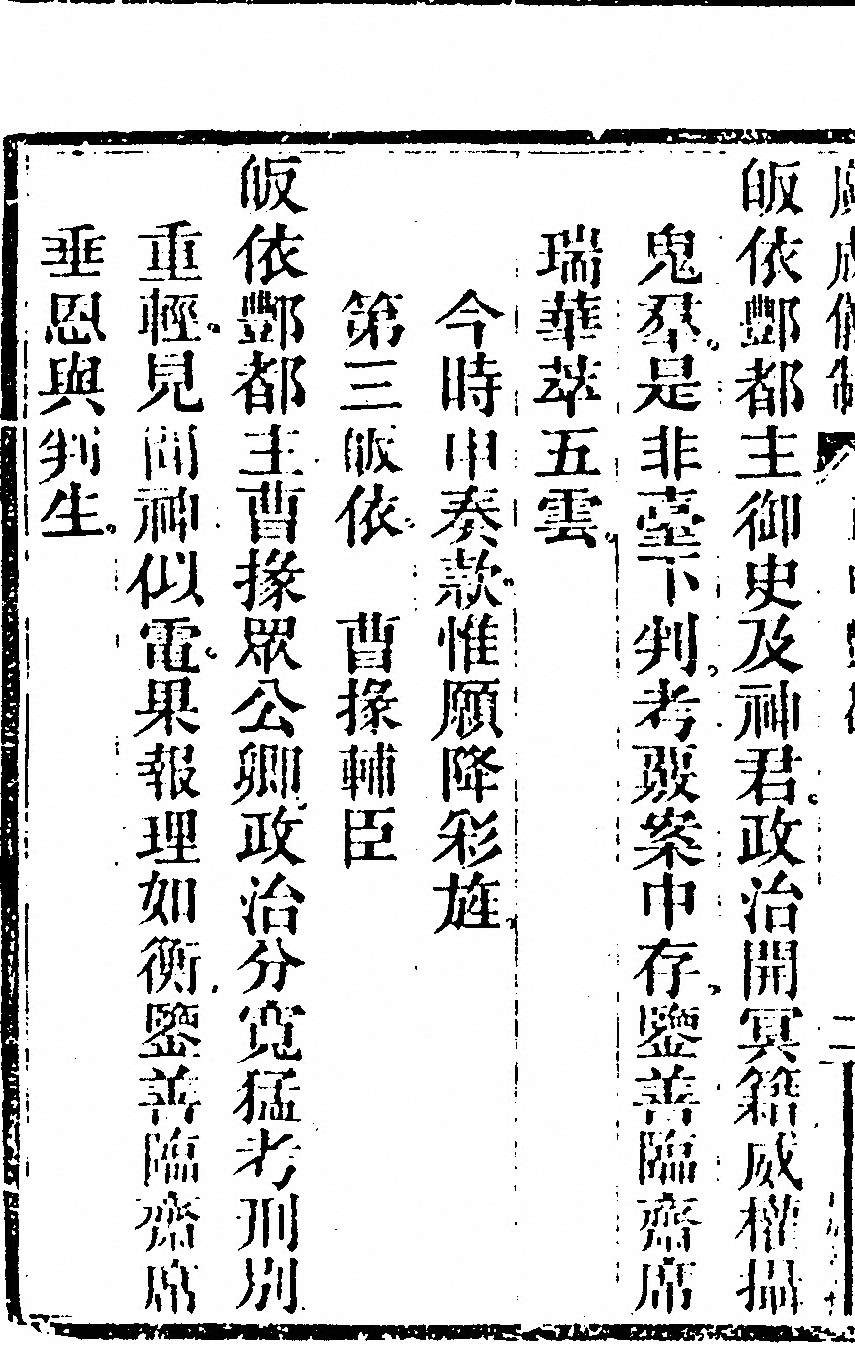 皈依酆都主御史及神君。政治開冥籍威權攝
鬼羣。是非臺下判。考覈案中存。鑒善臨齋席
瑞華萃五雲。
今時申奏款。惟願降彩旌。
第三皈依。　曹掾輔臣
皈依酆都主曹掾眾公卿。政治分寬猛考刑別
重輕。見聞神似電。果報理如衡。鑒善臨齋席
垂恩與判生。